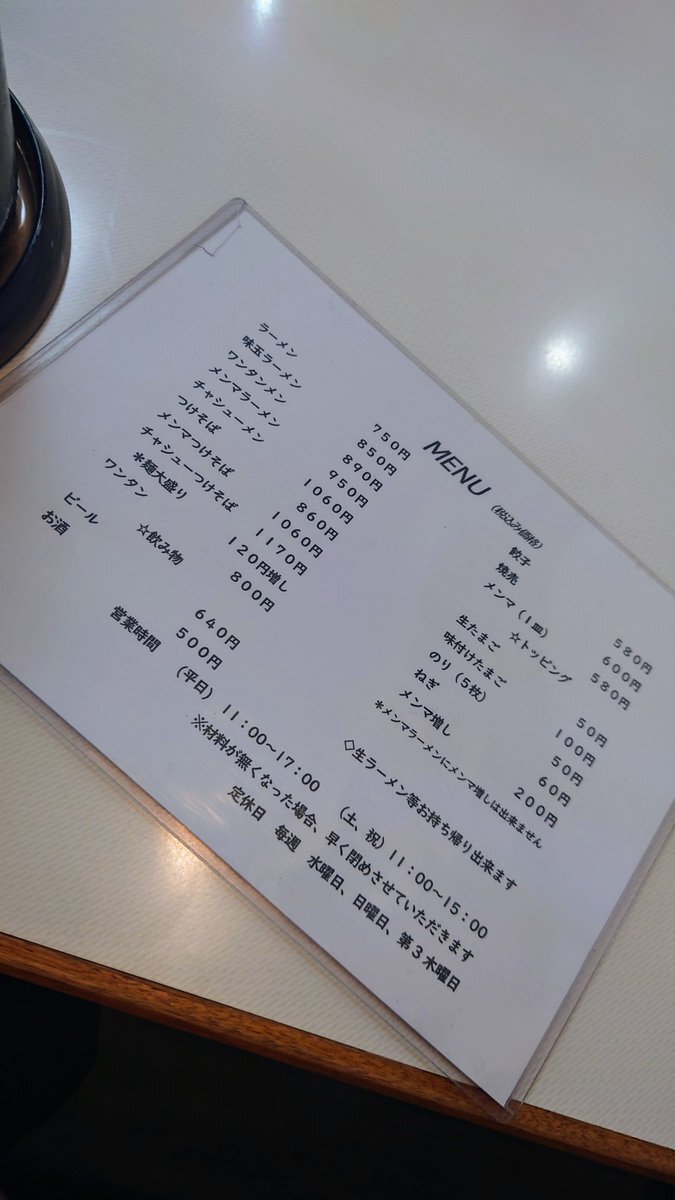 MENU (税込み価格)
ラーメン 750円
味玉ラーメン 850円
ワンタンメン 890円
メンマラーメン 950円
チャシューメン 1060円
つけそば 860円
メンマつけそば 1060円
チャシューつけそば 1170円
*麺大盛り 120円増し
ワンタン 800円
☆飲み物
ビール 640円
お酒 500円
餃子 580円
焼売 600円
メンマ(1皿) 580円
☆トッピング
生たまご 50円
味付けたまご 100円
のり(5枚) 50円
ねぎ 60円
メンマ増し 200円
*メンマラーメンにメンマ増しは出来ません
◇生ラーメン等お持ち帰り出来ます
営業時間 (平日) 11:00~17:00 (土、祝)11:00~15:00
※材料が無くなった場合、早く閉めさせていただきます
定休日 毎週 水曜日、日曜日、第3木曜日